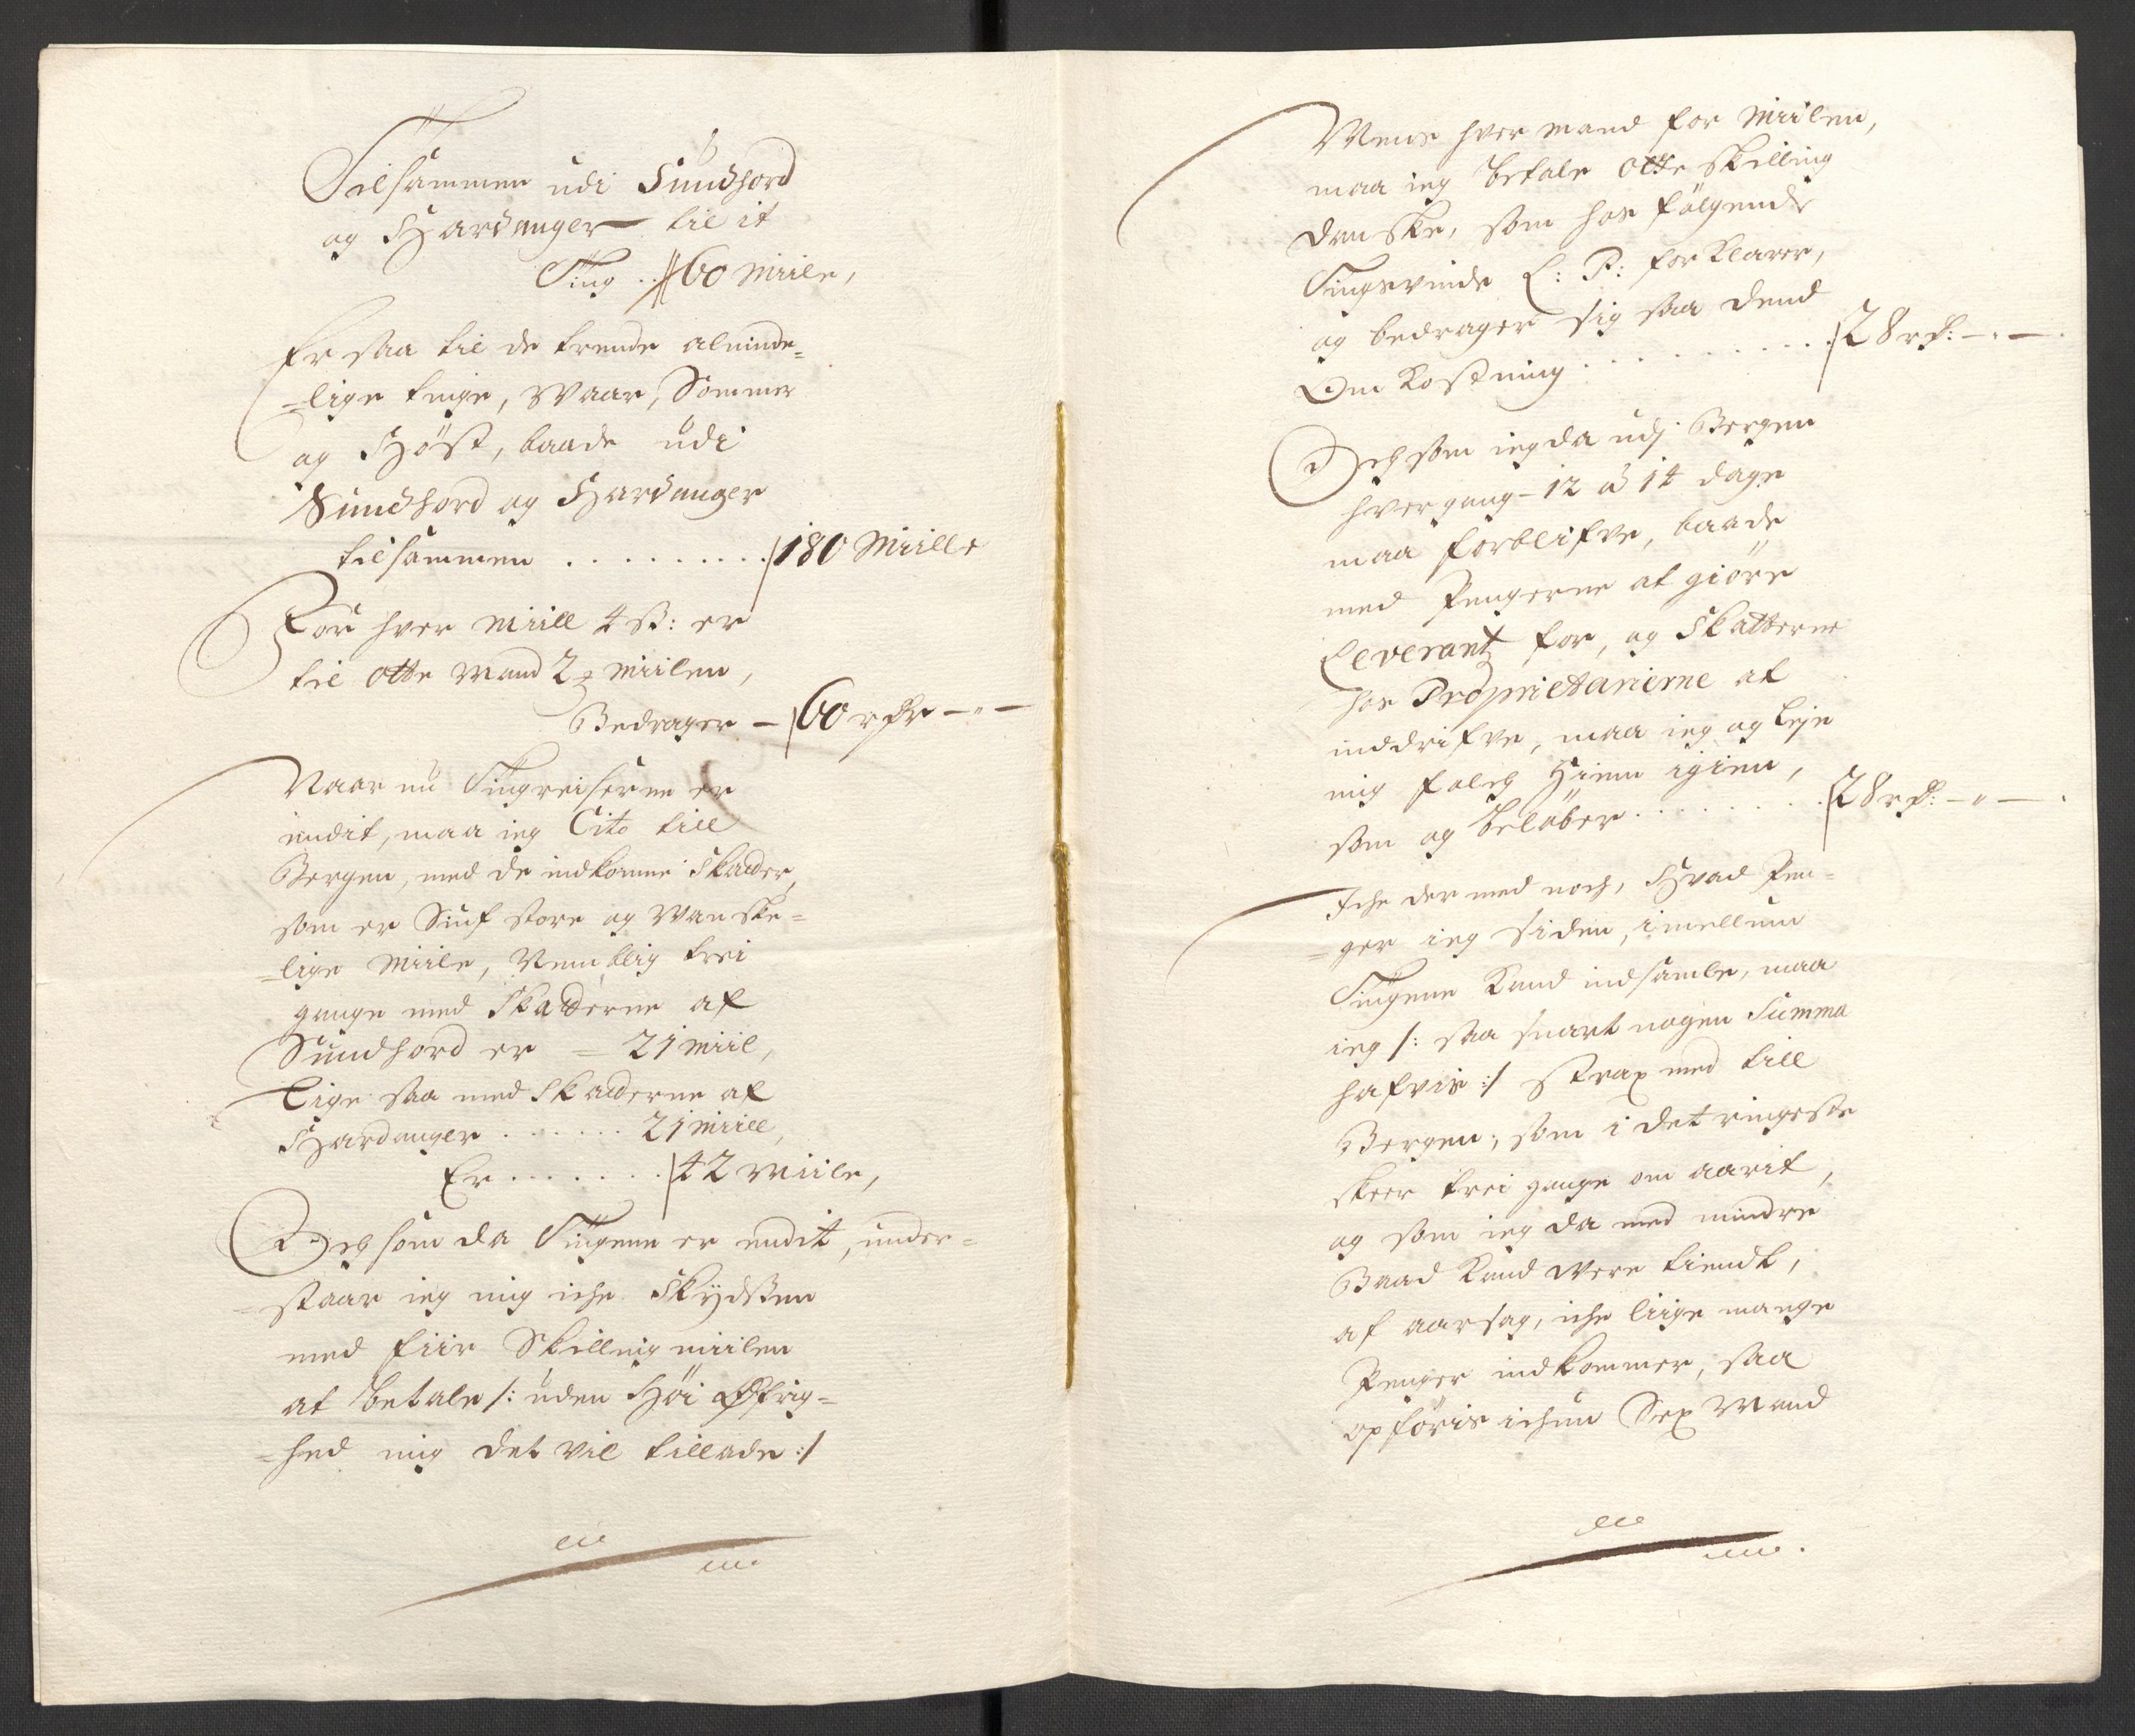 Tilsammen udi Sundhord
og Hardanger til it
Ting . . 60 Miile,
Er saa til de trende alminde=
=lige tinge, Waar, Sommer
og Høst, baade udi
Sundhord og Hardanger
tilsammen . . . . . . . . . 180 Miille
For hver Miill 4 s: er
til Otte Mand 2 miilen,
Bedrager – 60 rdr – " –
Naar nu Tingreiserne er
endit, maa ieg Cito till
Bergen, med de indkomne Skatter,
som er Siuf store og Wanske=
=lige Miile, Nemblig trei
gange med Skatterne af
Sundhord er = 21 miil,
Lige saa med Skatterne af
Hardanger . . . . . . 21 miill,
Er . . . . . . . 42 Miile,
Och som da Tingene er endit, under=
=staar ieg mig iche Skydtzen
med fiir Skilling miilen
at betale /: uden Høi Øfrig=
=hed mig det vil tillade :/
Mens hver mand for Miilen,
maa ieg betale Otte Skilling
danske, som hos følgende
Tingsvinde L: P: forklarer,
og bedrager sig saa dend
Omkostning . . . . . . . . . . 28 rd: – " –
Och som ieg da udj Bergen
hvergang – 12 à 14 dage
maa forblifve, baade
med Pengerne at giøre
Leverantz for, og Skatterne
hos Proprietarierne at
inddrifve, maa ieg og leje
mig folch Hiem igien,
som og beløber . . . . . . . . 28 rd: – " – .
Iche der med noch, Hvad Pen=
=ger ieg siden, imellum
Tingene Kand indsamle, maa
ieg /: saa snart nogen Summa
hafvis :/ strax med till
Bergen, som i det ringeste
skeer trei gange om aarit,
og som ieg da med mindre
Baad Kand were tiendt,
af aarsag, iche liige mange
Penger indkommer, saa
opføris ichun Sex Mand